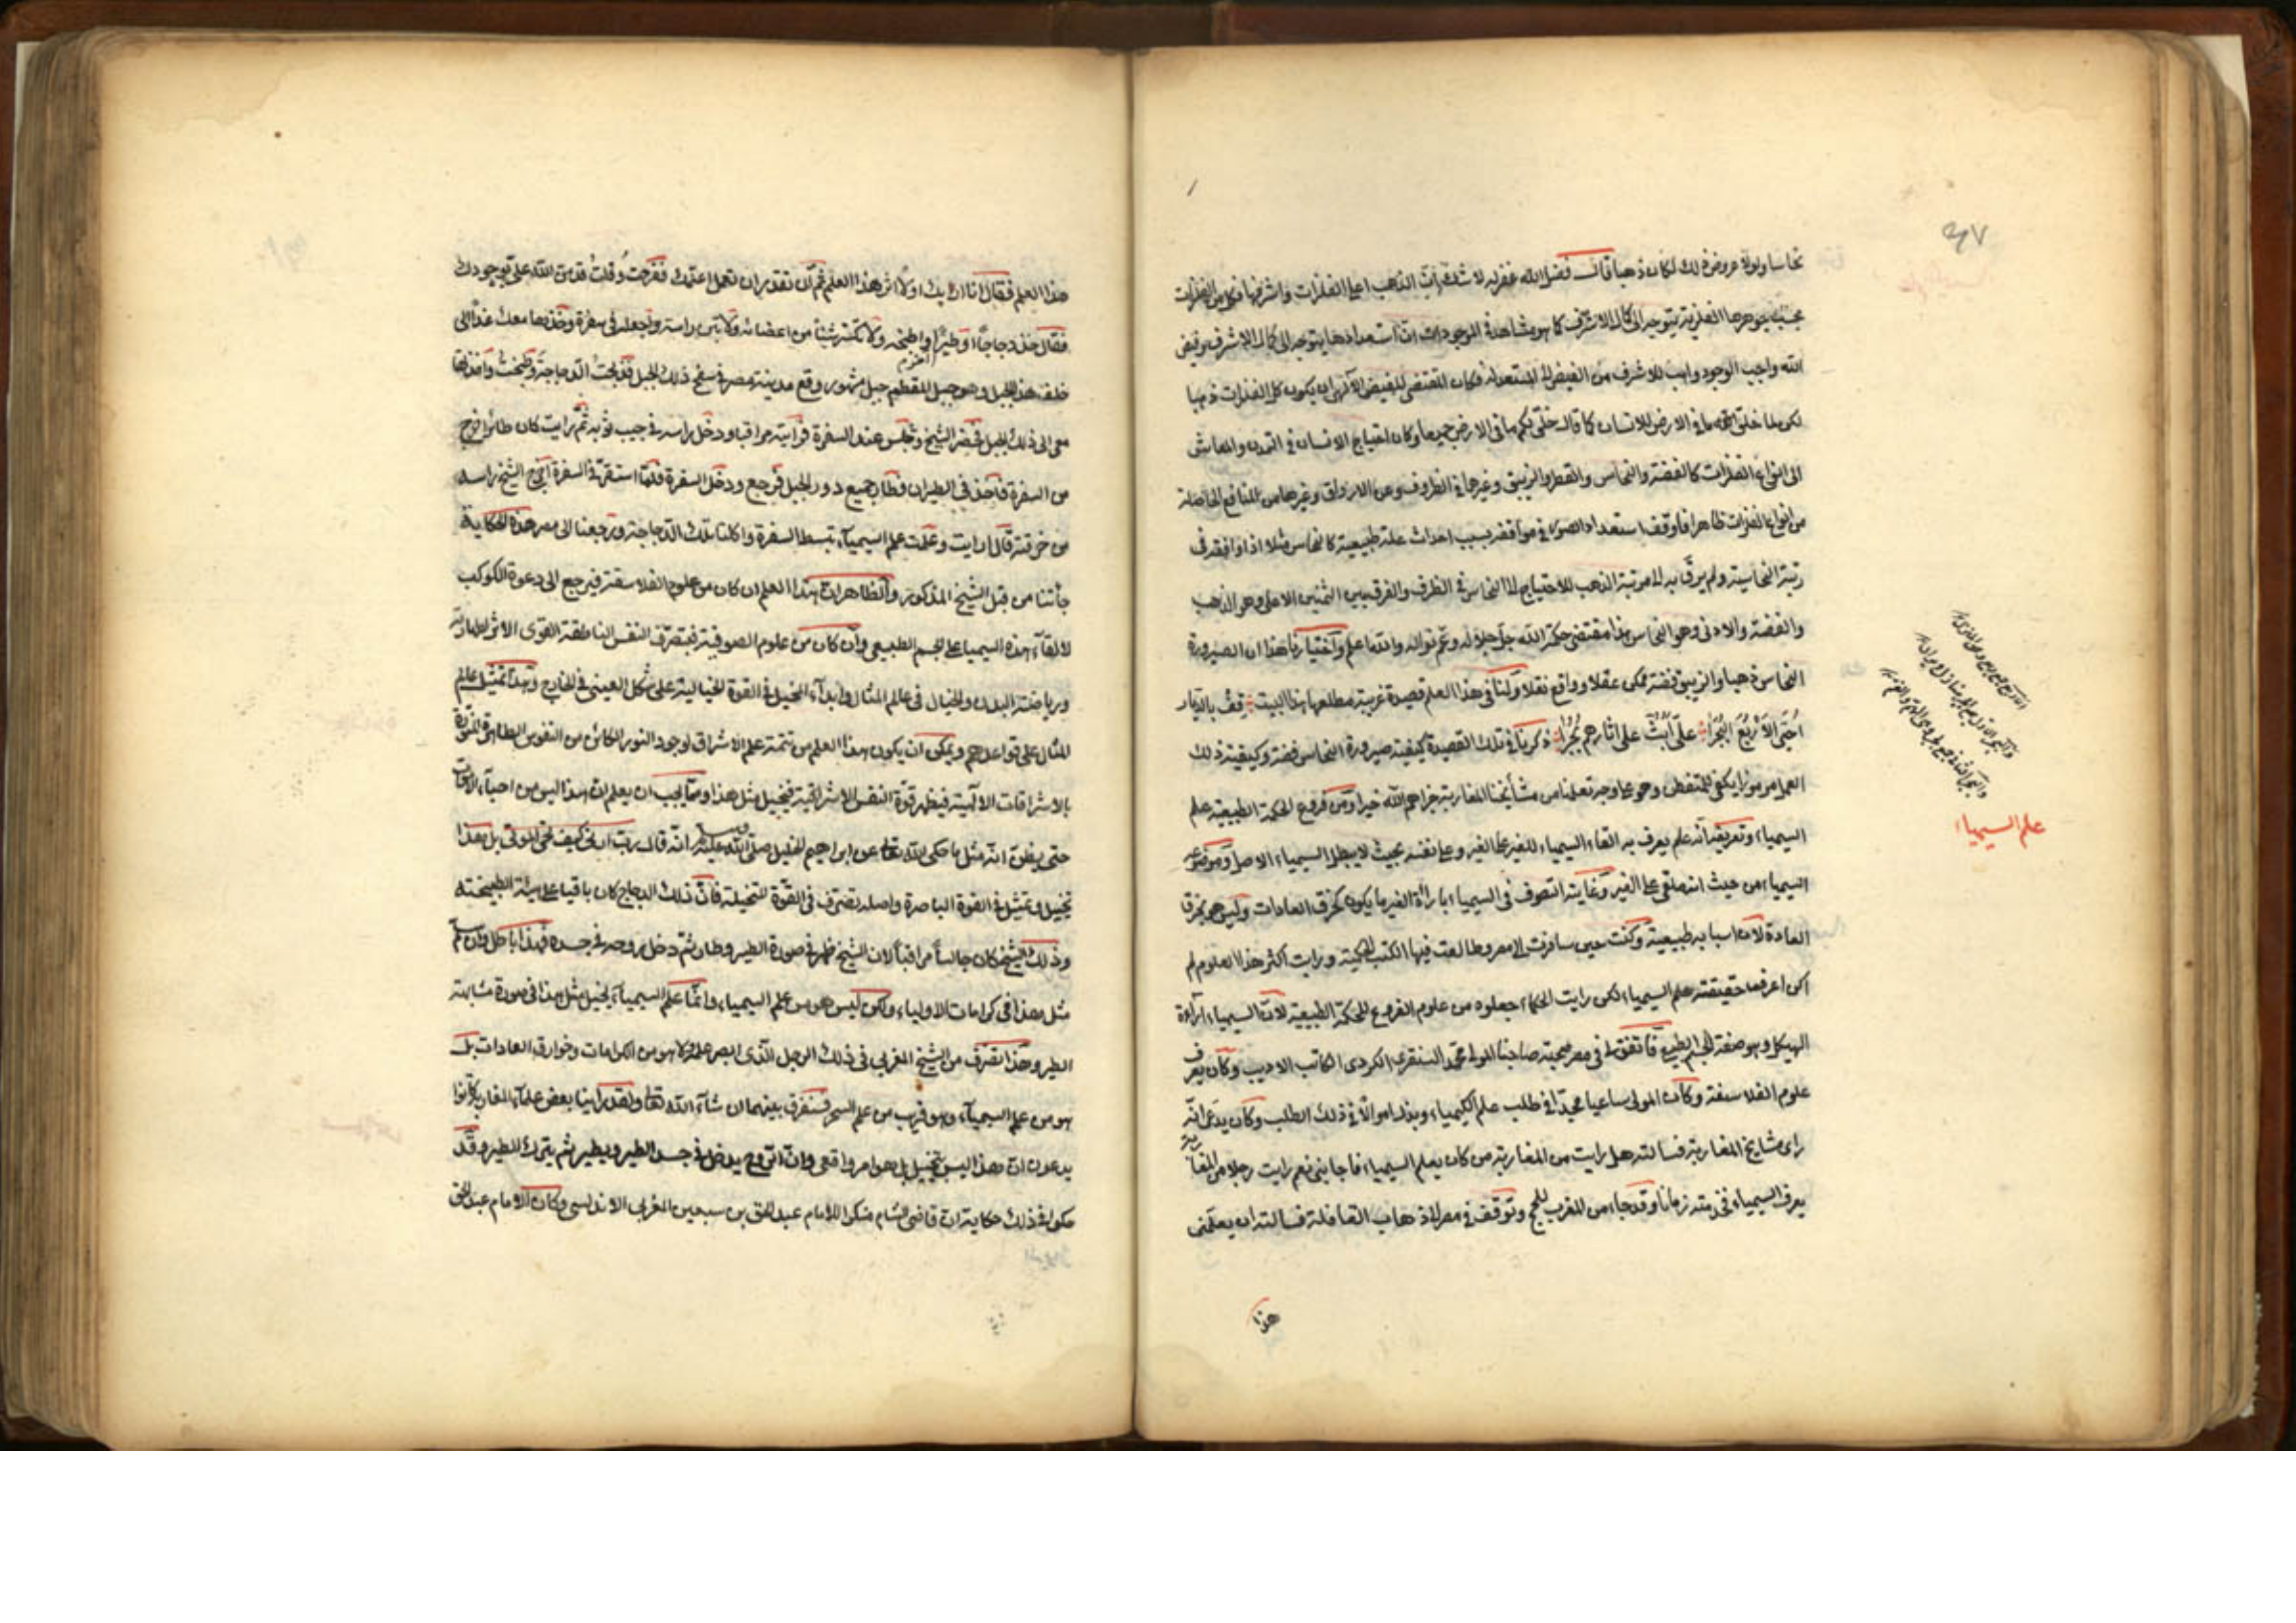 ٤٧
نحاسا ولولا عروض ذلك لكان ذهبا قال فضل الله غفر له لا شك ان الذهب اعلى الفلزات واشرفها فكل من الفلزات
بحسب جوهرها الفلزية يتوجه الى كمال الاشرف كما هو مشاهدة الموجودات ان استعدادها يتوجه الى كمال الاشرف وفيض
الله واجب الوجود واهب للاشرف من الفيض المستعد له فكان المقتضى للفيض الالهي ان يكون كل الفلزات ذهبا
لكن لما خلق الله ما في الارض للانسان كما قال خلق لكم ما في الارض جميعا وكان احتياج الانسان في التمدن والمعاش
الى انواع الفلزات كالفضة والنحاس والقطر والزيبق وغيرها في الظروف وعن الارواق وغيرها من المنافع الحاصلة
من انواع الفلزات ظاهرا فاوقف استعداد الصور في مواقفه بسبب احداث علة طبيعية كالنحاس مثلا اذا اوقفه في
رتبة النحاسية ولم يرق به الى مرتبة الذهب للاحتياج الى النحاس في الظرف والفرق بين الثمنين الاعلى وهو الذهب
والفضة والادنى وهو النحاس هذا مقتضى حكمة الله جل جلاله وعم نواله والله اعلم واختيارنا هذا ان الصيرورة
النحاس ذهبا والزيبق فضة ممكن عقلا وواقع نقلا ولنا في هذا العلم قصيدة غريبة مطلعها هذا البيت قف بالديار
احيى الاربع البحرا على ابث على اثارهم بحرا ذكرنا في تلك القصيدة كيفية صيرورة النحاس فضة وكيفية ذلك
العمل مرموزا يكفي للمتفطن وهو على وجه تعلمنا من مشائخنا المغاربة جزاهم الله خيرا ومن فروع الحكمة الطبيعية علم
السيمياء وتعريفه انه علم يعرف به القاء السيمياء للغير على الغير وعلى نفسه بحيث لا يبطل السيمياء الاصل وموضوعه
السيمياء من حيث انه ملقى على الغير وغايته التصوف في السيمياء باراءة الغير ما يكون كخرق العادات وليس هو بخرق
العادة لان اسبابه طبيعية وكنت حين سافرت الى مصر وطالعت فيها الكتب الحكمية ورايت اكثر هذا العلوم لم
اكن اعرف حقيقة علم السيمياء لكن رايت الحكماء جعلوه من علوم الفروع للحكمة الطبيعية لان السيمياء اراءة
الهيكل وهو صفة الجسم الطبيعي فاتفق لي في مصر صحبة صاحبنا المولى محمد السنقري الكردي الكاتب الاديب وكان يعرف
علوم الفلاسفة وكان المولى ساعيا مجدا في طلب علم الكيمياء وبذل اموالا في ذلك الطلب وكان يدعى انه
راى مشايخ المغاربة فسالته هل رايت من المغاربة من كان يعلم السيمياء فاجابني نعم رايت رجلا من المغاربة
يعرف السيمياء فخدمته زمانا وقد جاء من المغرب للحج وتوقف في مصر الى ذهاب القافلة فسالته ان يعلمني
هذا
علم السيمياء
هذا العلم فقال انا اريك اولا اثر هذا العلم ثم ان تقدر ان تعمل اعلمك ففرحت وقلت قد من الله علي بوجودك
فقال خذ دجاجا او طيرا واطبخه ولا تكسر شيئا من اعضائه ولا تبن راسه واجعله في سفرة وخذها معك غدا الى
خلف هذا الجبل وهو جبل المقطم جبل مشهور وقع مدينة مصر في سفح ذلك الجبل فذبحت الدجاجة وطبخت واخذتها
معى الى ذلك الجبل فحضر الشيخ وجلس عند السفرة فرايته مراقبا ودخل راسه في جيب ثوبه ثم رايت كان طائرا خرج
من السفرة فاخذ في الطيران فطار جميع دور الجبل فرجع ودخل السفرة فلما استقر في السفرة اخرج الشيخ راسه
من خرقته قال ارايت وعلمت علم السيمياء نبسط السفرة واكلنا تلك الدجاجة ورجعنا الى مصر هذه الحكاية
جأتنا من قبل الشيخ المذكور والظاهر ان هذا العلم ان كان من علوم الفلاسفة فيرجع الى دعوة الكوكب
لالقاء هذه السيمياء على الجسم الطبيعي وان كان من علوم الصوفية فبتصرف النفس الناطقة القوى الاثر لطهارته
ورياضة البدن والخيال في عالم المثال وابداء المخيل في القوة الخيالية على شكل العيني في الخارج وهذا تمثيل عالم
المثال على قواعدهم ويمكن ان يكون هذا العلم من تتمة علم الاشراق لوجود النور الكائن من النفوس الطاهرة المنورة
بالاشراقات الالهية فيظهر قوة النفس الاشراقية فيخيل مثل هذا ومما يجب ان يعلم ان هذا ليس من احياء الاموات
حتى يظن انه مثل ما حكى الله تعالى عن ابراهيم الخليل صلى الله عليه وسلم انه قال رب ارنى كيف تحيي الموتى بل هذا
تخييل وتمثيل في القوة الباصرة واصله تصرف في القوة المتخيلة فان ذلك الدجاج كان باقيا على هيئة الطبيخته
وذلك الشيخ كان جالسا مراقبا لان الشيخ ظهر في صورة الطير وطار ثم دخل بروحه في جسده فهذا باطل وان سلم
مثل هذا في كرامات الاولياء ولكن ليس هو من علم السيمياء وانما علم السيمياء تخييل مثل هذا في صورة مشابهة
الطير وهذا تصرف من الشيخ المغربي في ذلك الرجل الذى ابصر عمله لا هو من الكرامات وخوارق العادات بل
هو من علم السيمياء وهو قريب من علم السحر وسنفرق بينهما ان شاء الله تعالى ولقد راينا بعض علماء المغاربة كانوا
يدعون ان هذا ليس بتخييل بل هو امر واقعي وان الروح يدخل في جسد الطير ويطير ثم يترك الطير وقد
حكوا في ذلك حكاية ان قاضي الشام منكرا للامام عبد الحق بن سبعين المغربي الاندلسي وكان الامام عبد الحق